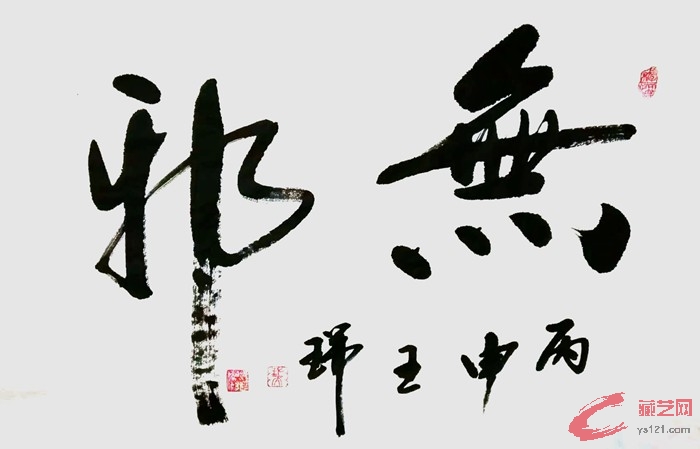 無邪
丙申王瑞
藏艺网
ys121.com